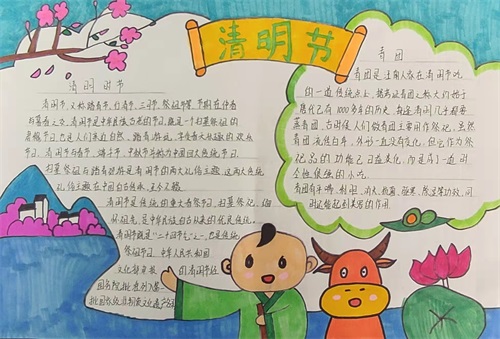 清明节
清明时节
清明节，又称踏青节、行清节、三月节、祭祖节等，节期在仲春
与暮春之交。清明节是中华民族古老的节日，既是一个扫墓祭祖的
肃穆节日，也是人们亲近自然、踏青游玩、享受春天乐趣的欢乐
节日。清明节与春节、端午节、中秋节并称为中国四大传统节日。
扫墓祭祖与踏青郊游是清明节的两大礼俗主题，这两大传统
礼俗主题在中国自古传承，至今不辍。
清明节是传统的重大春祭节日，扫墓祭祀、缅
怀祖先，是中华民族自古以来的优良传统。
祭祖节日。中华人民共和国
文化部申报的清明节经
国务院批准列入第一
批国家级非物质文化遗产名录
青团
青团是江南人家在清明节吃
的一道传统点心，据考证青团之称大约始于
唐代，已有1000多年的历史，每逢清明几乎都要
蒸青团，古时候人们做青团主要用作祭祀，虽然
青团流传百年，外形一直没有变化，但它作为祭
祀品的功能已日益淡化，而是用一道时
令性很强的小吃。